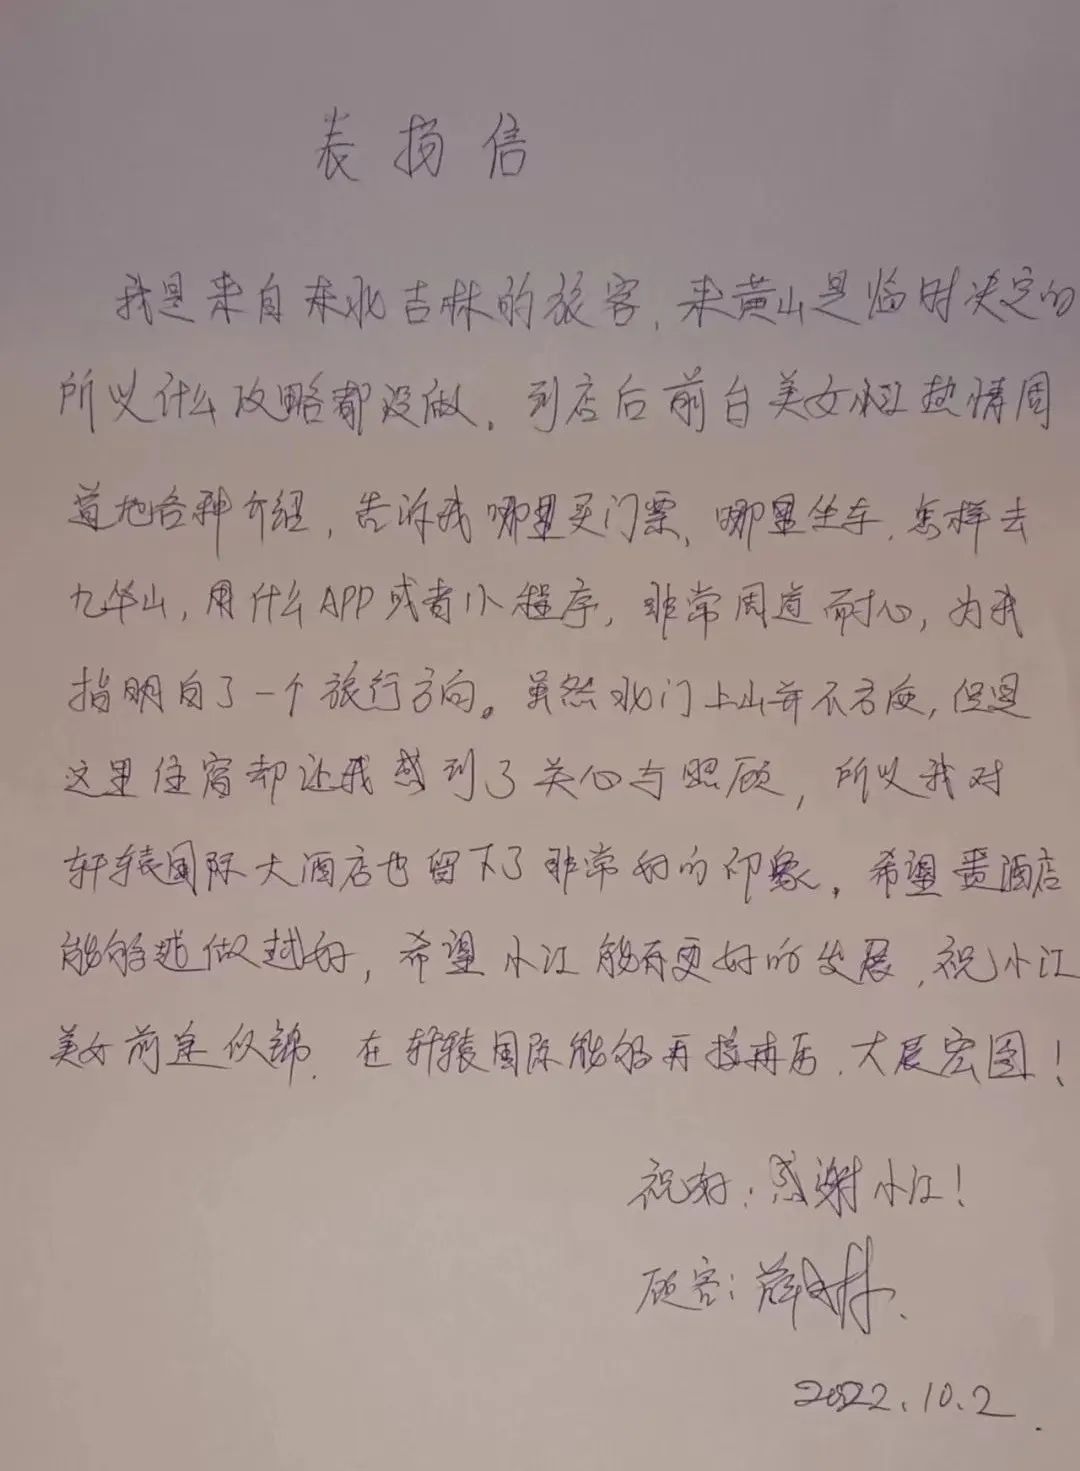 表扬信
我是来自东北吉林的旅客,来黄山是临时决定的
所以什么攻略都没做。到店后前台美女小江热情周
道地各种介绍,告诉我哪里买门票,哪里坐车,怎样去
九华山,用什么APP或者小程序,非常周道耐心,为我
指明白了一个旅行方向。虽然北门上山并不方便,但是
这里住宿却让我感到了关心与照顾,所以我对
轩辕国际大酒店也留下了非常好的印象。希望贵酒店
能够越做越好,希望小江能有更好的发展,祝小江
美女前途似锦,在轩辕国际能够再接再厉,大展宏图!
祝好:感谢小江!
顾客:薛
2022.10.2